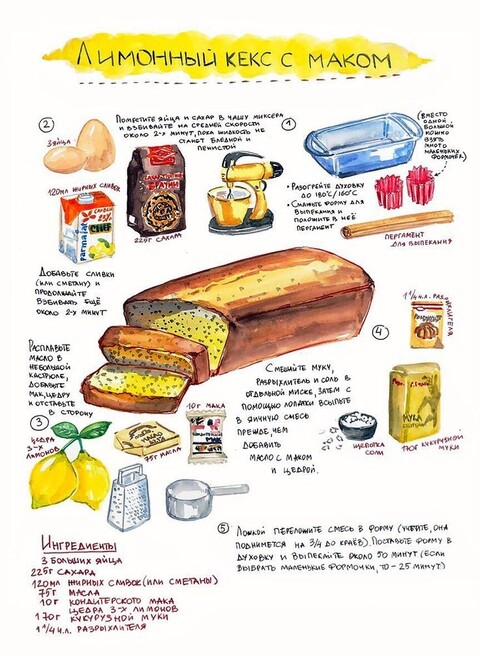 Лимонный кекс с маком
①
(вместо
одной
большой
можно
взять
много
маленьких
формочек)
• Разогрейте духовку
до 180°С/160°С
• Смажьте форму для
выпекания и
положите в неё
пергамент
пергамент
для выпекания
②
Поместите яйца и сахар в чашу миксера
и взбивайте на средней скорости
около 2-х минут, пока жидкость не
станет бледной и
пенистой
3 яйца
120мл жирных сливок
parmalat
CHEF
225г сахара
Добавьте сливки
(или сметану) и
продолжайте
взбивать ещё
около 2-х минут
Расплавьте
масло в
небольшой
кастрюле,
добавьте
мак, цедру
и отставьте
в сторону
③
цедра
3-х
лимонов
75г масла
10г мака
④
1 1/4 ч.л. разрыхлителя
Смешайте муку,
разрыхлитель и соль в
отдельной миске, затем с
помощью лопатки всыпьте
в яичную смесь
прежде, чем
добавить
масло с маком
и цедрой.
щепотка
соли
Мука
170г кукурузной
муки
⑤ Ложкой переложите смесь в форму (учтите, она
поднимется на 3/4 до краёв). Поставьте форму в
духовку и выпекайте около 50 минут (если
выбрать маленькие формочки, то – 25 минут)
Ингредиенты
3 больших яйца
225г сахара
120мл жирных сливок (или сметаны)
75г масла
10г кондитерского мака
цедра 3-х лимонов
170г кукурузной муки
1 1/4 ч.л. разрыхлителя